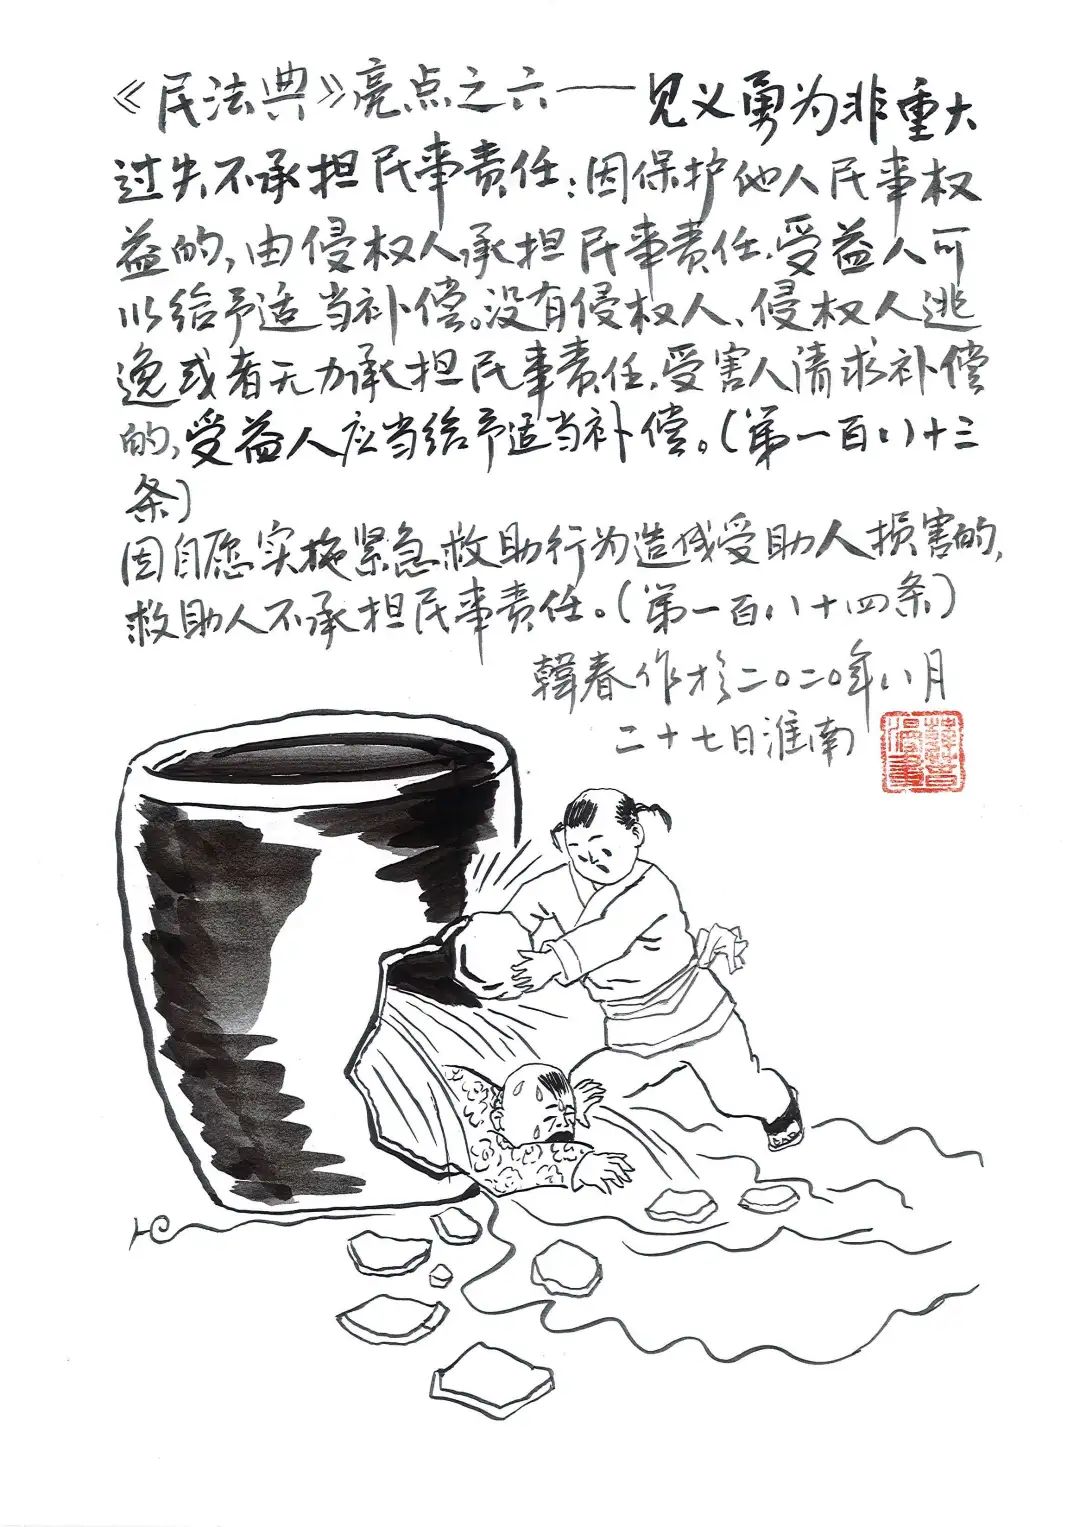 《民法典》亮点之六——见义勇为非重大
过失不承担民事责任：因保护他人民事权
益的，由侵权人承担民事责任，受益人可
以给予适当补偿。没有侵权人、侵权人逃
逸或者无力承担民事责任，受害人请求补偿
的，受益人应当给予适当补偿。（第一百八十三
条）
因自愿实施紧急救助行为造成受助人损害的，
救助人不承担民事责任。（第一百八十四条）
韓春作於二〇二〇年八月
二十七日淮南